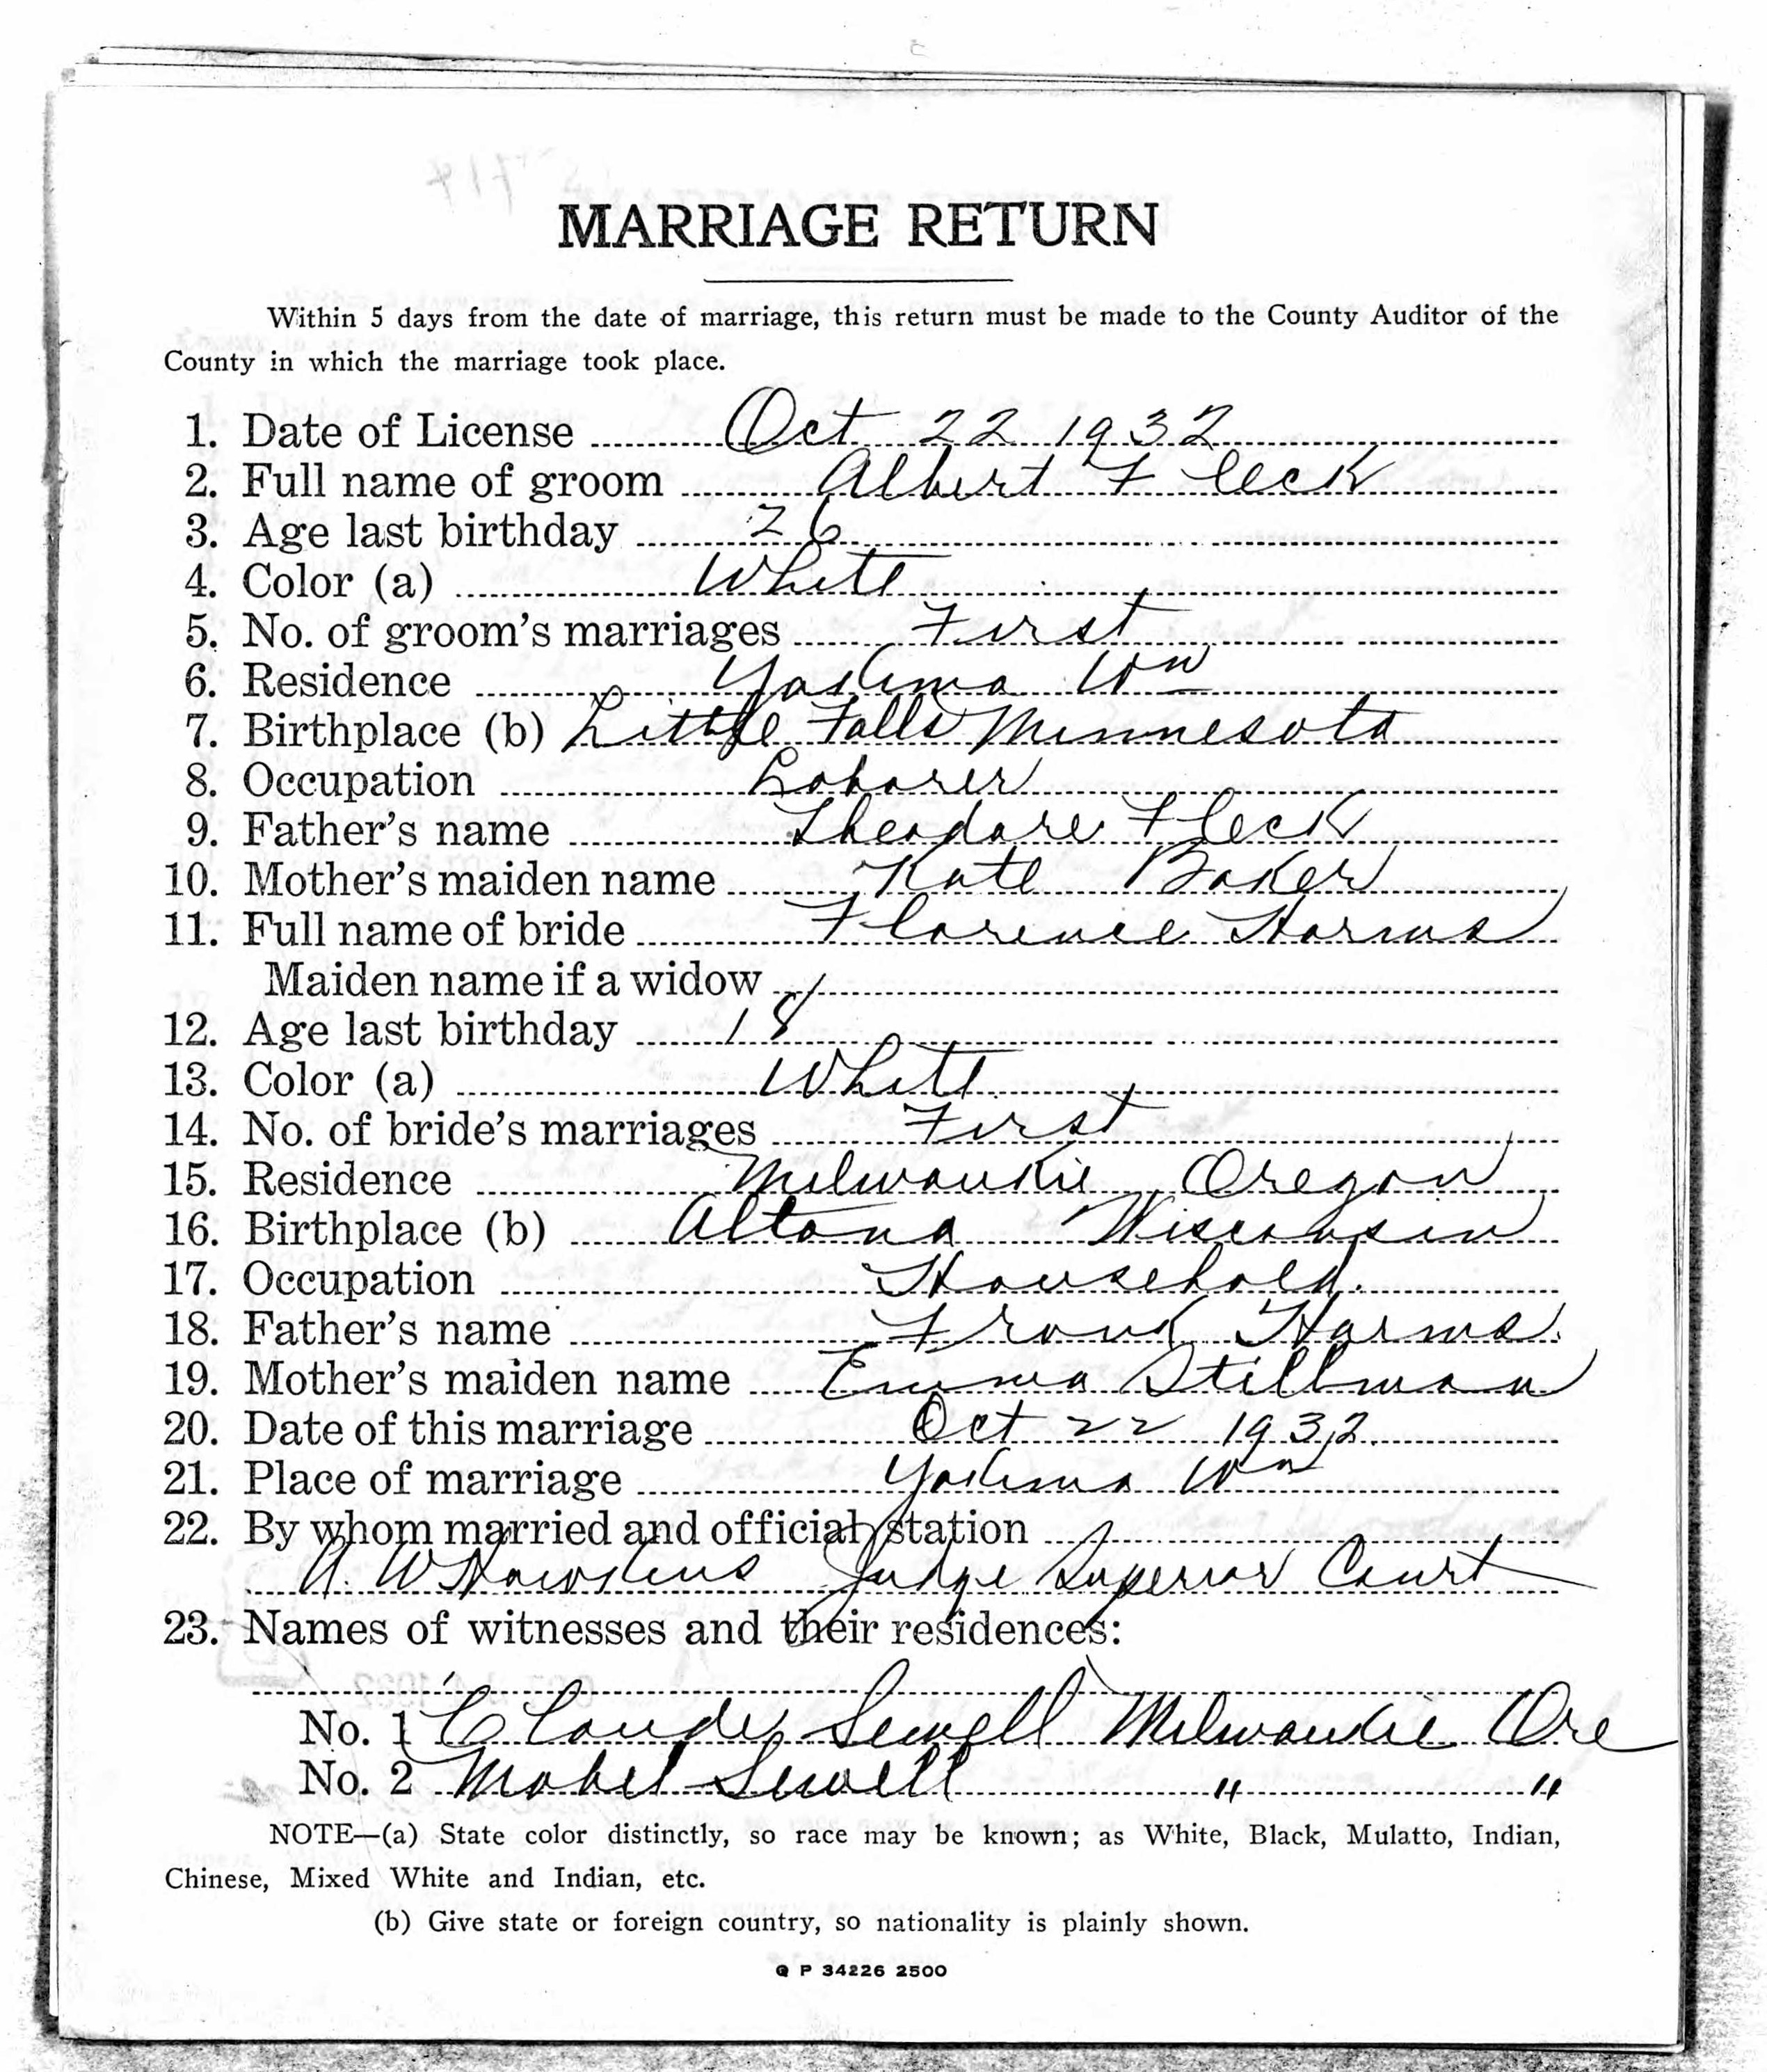 MARRIAGE RETURN
Within 5 days from the date of marriage, this return must be made to the County Auditor of the
County in which the marriage took place.
1. Date of License Oct 22 1932
2. Full name of groom Albert Fleck
3. Age last birthday 26
4. Color (a) White
5. No. of groom's marriages First
6. Residence Yakima Wn
7. Birthplace (b) Little Falls Minnesota
8. Occupation Laborer
9. Father's name Theodore Fleck
10. Mother's maiden name Kate Baker
11. Full name of bride Florence Harms
Maiden name if a widow
12. Age last birthday 18
13. Color (a) White
14. No. of bride's marriages First
15. Residence Milwaukie Oregon
16. Birthplace (b) Altona Wisconsin
17. Occupation Household.
18. Father's name Frank Harms
19. Mother's maiden name Emma Stillman
20. Date of this marriage Oct 22 1932
21. Place of marriage Yakima Wn
22. By whom married and official station
A. W Hawkins Judge Superior Court
23. Names of witnesses and their residences:
No. 1 Claude Sewell Milwaukie Ore
No. 2 Mabel Sewell " "
NOTE—(a) State color distinctly, so race may be known; as White, Black, Mulatto, Indian,
Chinese, Mixed White and Indian, etc.
(b) Give state or foreign country, so nationality is plainly shown.
Q P 34226 2500